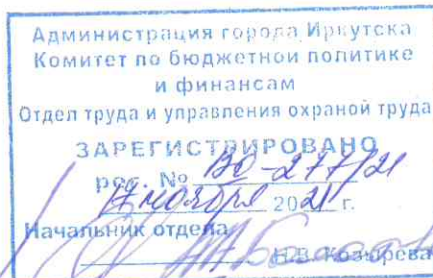 Администрация города Иркутска
Комитет по бюджетной политике
и финансам
Отдел труда и управления охраной труда
ЗАРЕГИСТРИРОВАНО
рег. № 130-277/21
17 ноября 2021 г.
Начальник отдела
Н.В. Козырева